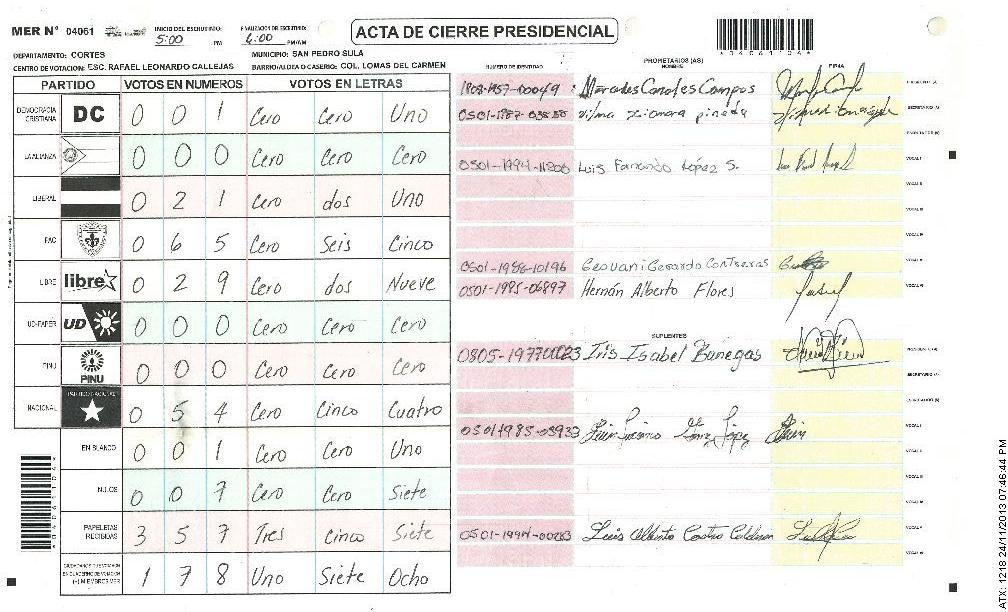 MER N° 04061 INICIO DEL ESCRUTINIO: 5:00 PM FINALIZACION DE ESCRUTINIO: 6:00 PM/AM ACTA DE CIERRE PRESIDENCIAL
DEPARTAMENTO: CORTES MUNICIPIO: SAN PEDRO SULA
CENTRO DE VOTACION: ESC. RAFAEL LEONARDO CALLEJAS BARRIO/ALDEA O CASERIO: COL. LOMAS DEL CARMEN
PARTIDO VOTOS EN NUMEROS VOTOS EN LETRAS
DEMOCRACIA CRISTIANA DC 0 0 1 Cero Cero Uno
LA ALIANZA 0 0 0 Cero Cero Cero
LIBERAL 0 2 1 Cero dos Uno
PAC 0 6 5 Cero Seis Cinco
LIBRE libre 0 2 9 Cero dos Nueve
UD-FAPER UD 0 0 0 Cero Cero Cero
PINU PINU 0 0 0 Cero Cero Cero
NACIONAL PARTIDO NACIONAL 0 5 4 Cero Cinco Cuatro
EN BLANCO 0 0 1 Cero Cero Uno
NULOS 0 0 7 Cero Cero Siete
PAPELETAS RECIBIDAS 3 5 7 Tres Cinco Siete
1 7 8 Uno Siete Ocho
NUMERO DE IDENTIDAD PROPIETARIOS (AS) NOMBRE FIRMA
Mercedes Canales Campos PRESIDENTE (A)
Vilma Xiomara pineda SECRETARIO (A)
ESCRUTADOR (A)
Luis Fernando López S. VOCAL I
VOCAL II
VOCAL III
VOCAL IV
0501-1988-10196 Geovani Gerardo Contreras VOCAL V
0501-1995-06897 Hernán Alberto Flores VOCAL VI
SUPLENTES
Iris Isabel Banegas PRESIDENTE (A)
SECRETARIO (A)
ESCRUTADOR (A)
VOCAL I
VOCAL II
VOCAL III
VOCAL IV
0501-1994-00283 Luis Alberto Castro Calderon VOCAL V
VOCAL VI
ATX: 1218 24/11/2013 07:46:44 PM